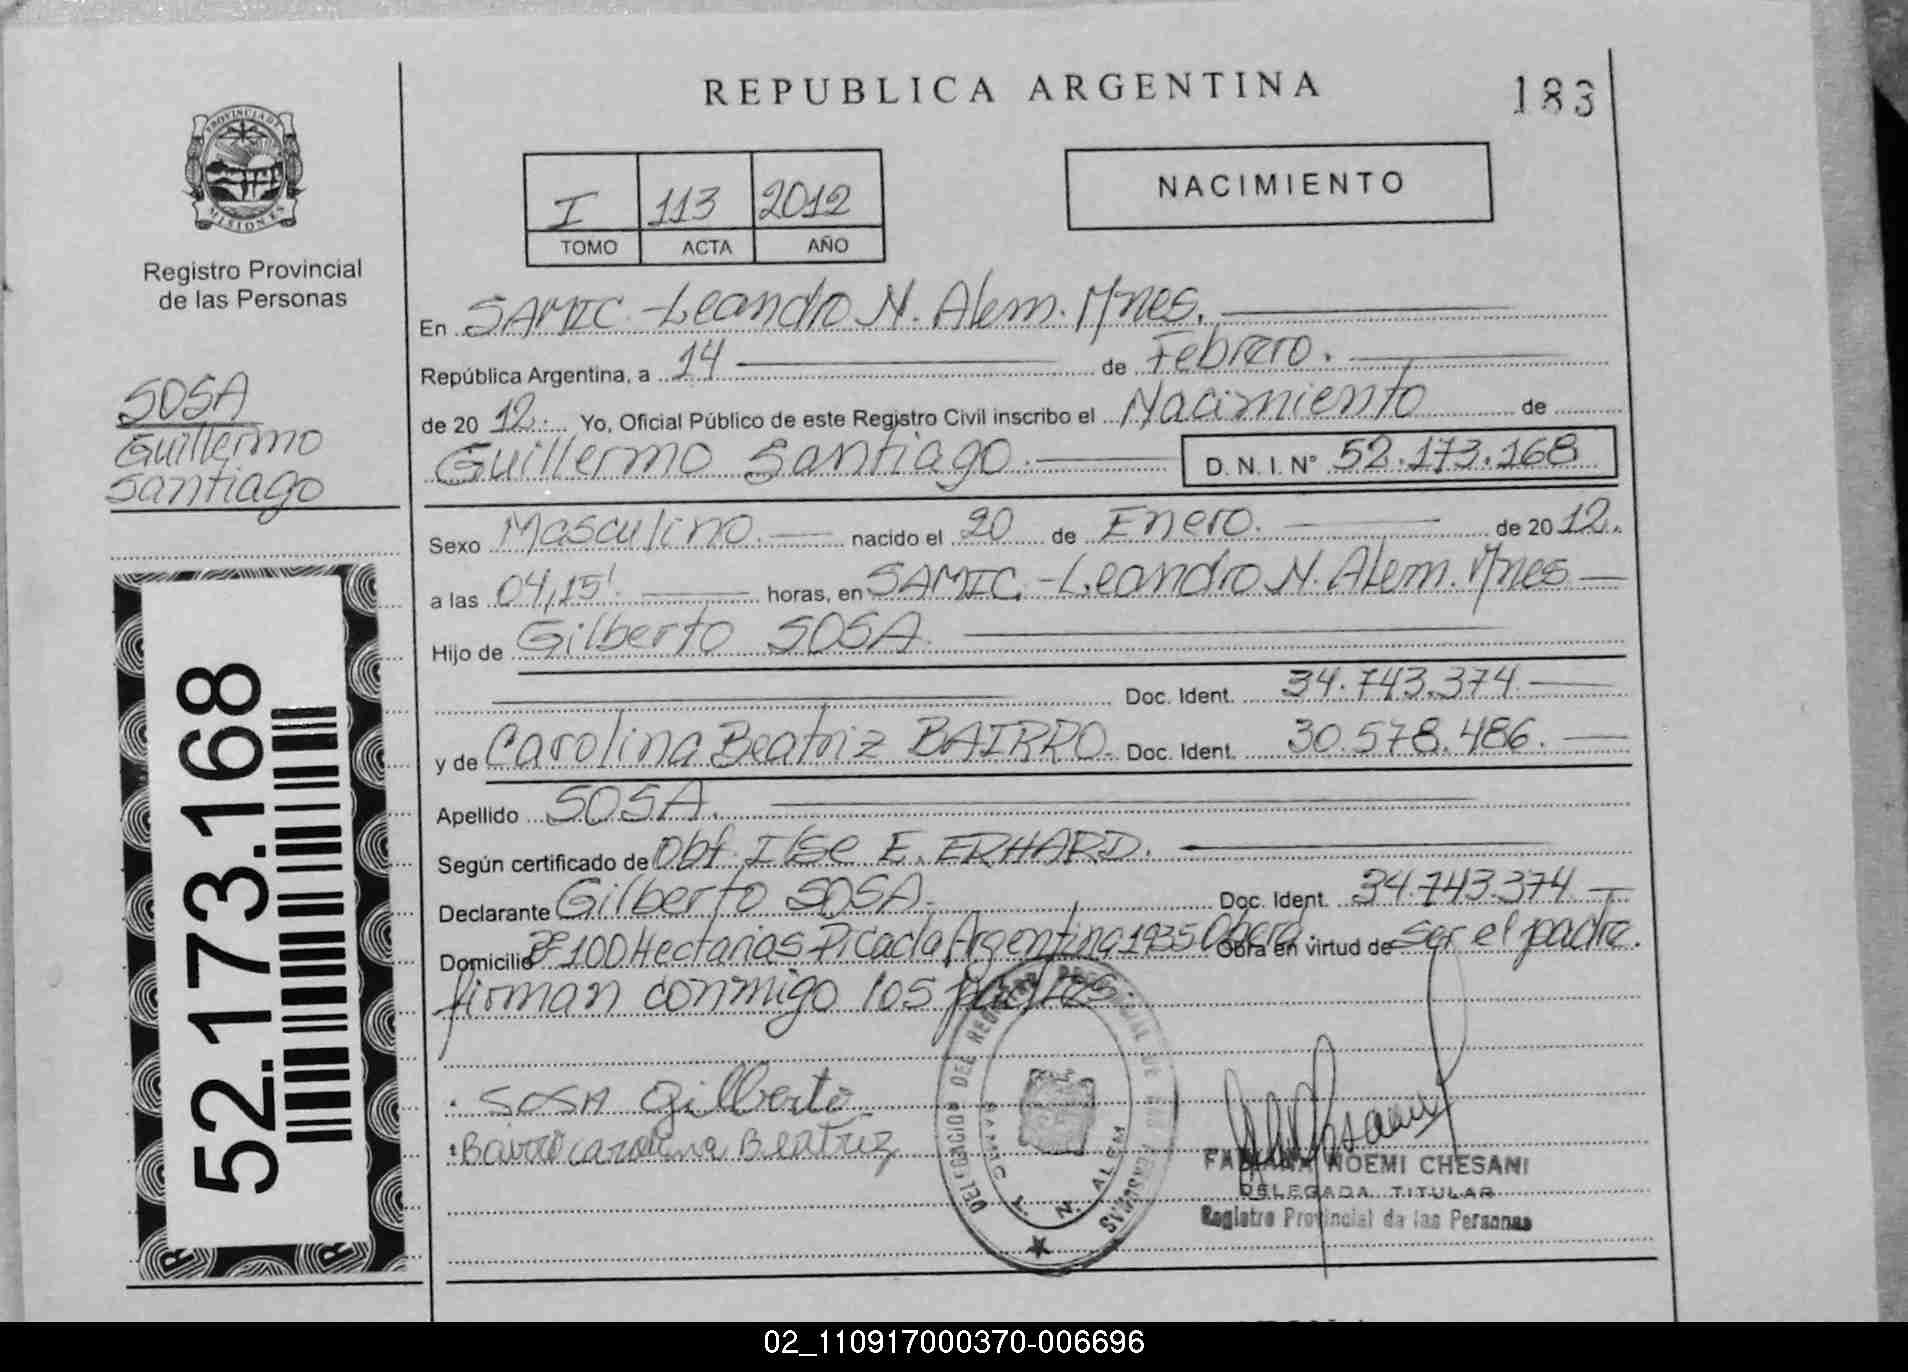 REPUBLICA ARGENTINA
183
PROVINCIA DE MISIONES
Registro Provincial
de las Personas
I 113 2012
TOMO ACTA AÑO
NACIMIENTO
SOSA
Guillermo
Santiago
En SAMIC - Leandro N. Alem. Mnes.
República Argentina, a 14 de Febrero.
de 2012. Yo, Oficial Público de este Registro Civil inscribo el Nacimiento de
Guillermo Santiago. D. N. I. N° 52.173.168
Sexo Masculino. nacido el 20 de Enero. de 2012.
a las 04,15'. horas, en SAMIC. - Leandro N. Alem. Mnes
Hijo de Gilberto SOSA.
Doc. Ident. 34.743.374
y de Carolina Beatriz BAIRRO. Doc. Ident. 30.578.486.
Apellido SOSA.
Según certificado de Obt. Ilse E. ERHARD.
Declarante Gilberto SOSA. Doc. Ident. 34.743.374
Domicilio 100 Hectarias Picada Argentina 1935 Oberá. Obra en virtud de ser el padre.
firman conmigo los padres.
SOSA Gilberto
Bairro carolina Beatriz
52.173.168
DELEGACION DEL REGISTRO PROVINCIAL DE LAS PERSONAS
SAMIC L. N. ALEM
FABIANA NOEMI CHESANI
DELEGADA TITULAR
Registro Provincial de las Personas
02_110917000370-006696